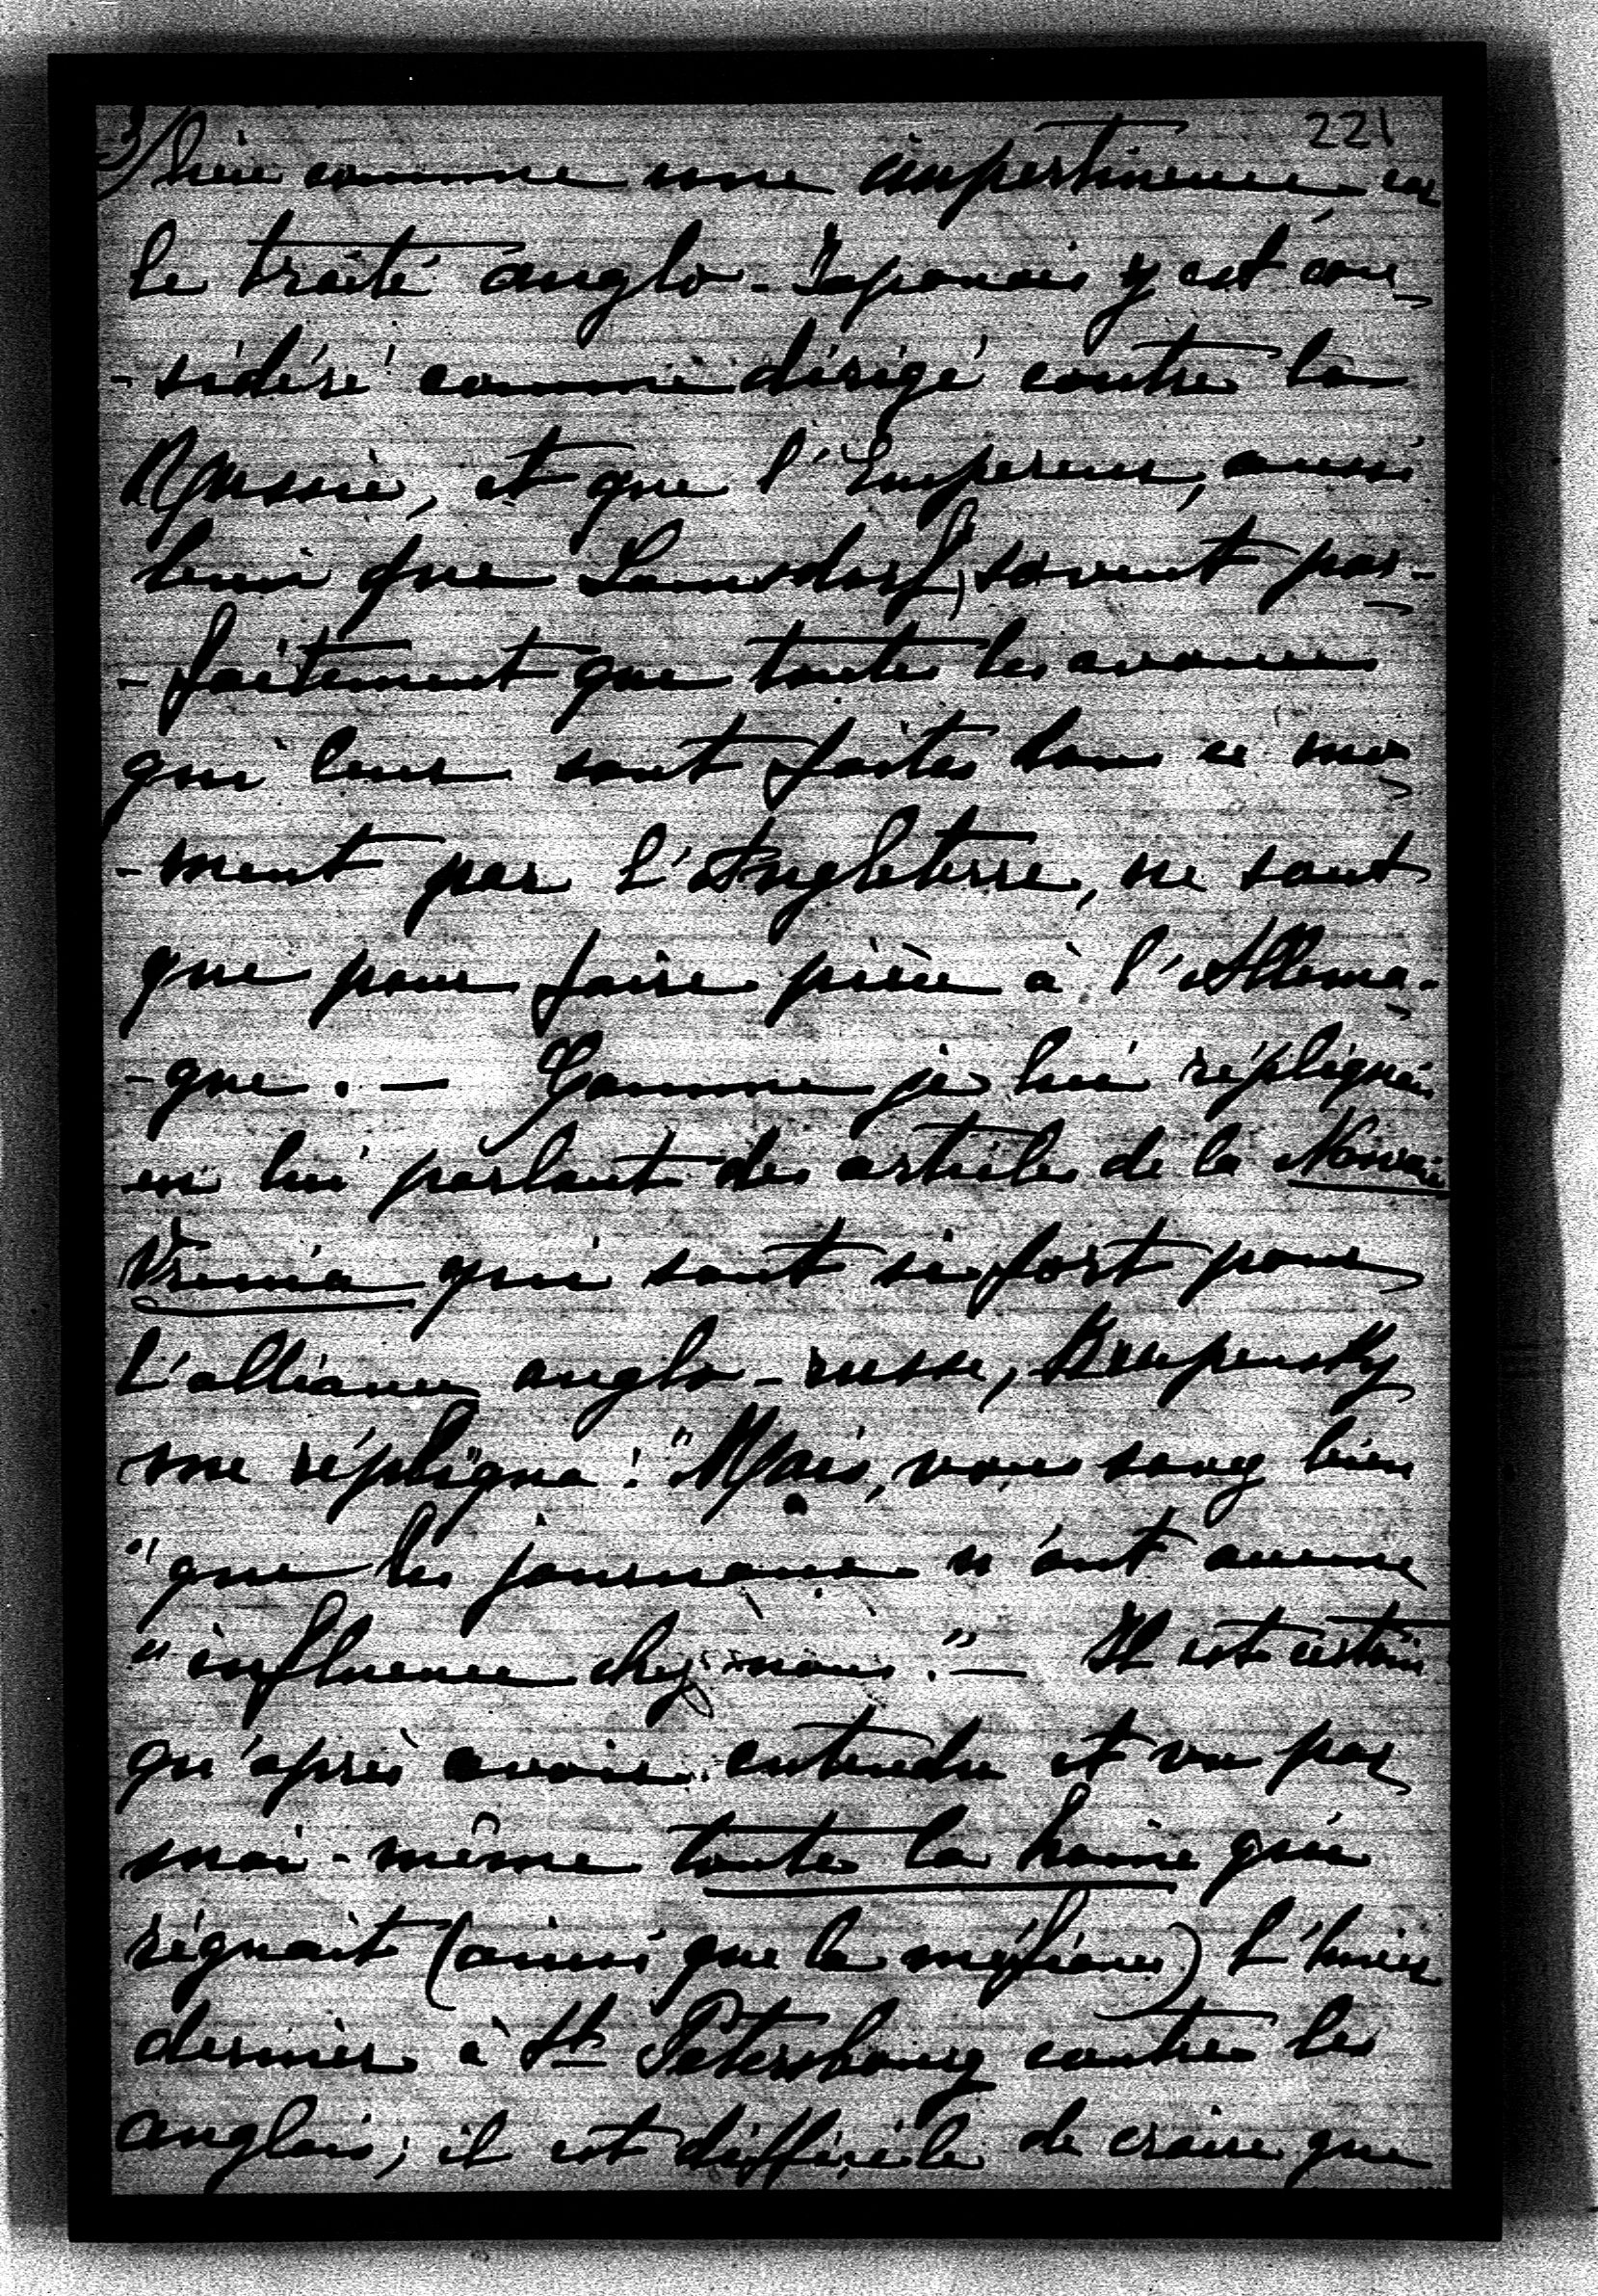 221
3/ lière comme une impertinence car
le traité anglo-Japonais y est con-
-sidéré comme dirigé contre la
Russie, et que l'Empereur, aussi
bien que Lamsdorf, savent par-
-faitement que toutes les avances
qui leur sont faites dans ce mo-
-ment par l'Angleterre, ne sont
que pour faire pièce à l'Allema-
-gne. — Comme je lui répliquai
en lui parlant des articles de la Novoié
Vrémia qui sont si fort pour
l'alliance anglo-russe, Kroupensky
me répliqua: "Mais, vous savez bien
"que les journaux n'ont aucune
"influence chez nous." — Il est certain
qu'après avoir entendu et vu par
moi-même toute la haine qui
régnait (ainsi que la méfiance) l'hiver
dernier à St Pétersbourg contre les
anglais, il est difficile de croire que